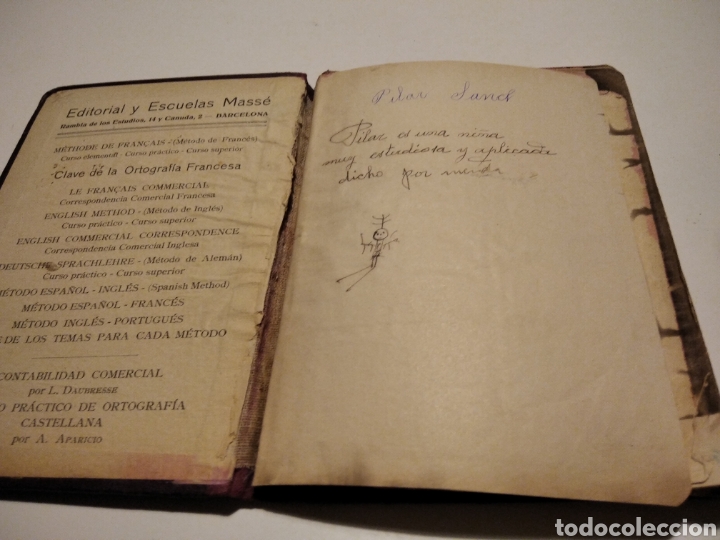 Editorial y Escuelas Massé
Rambla de los Estudios, 14 y Canuda, 2 — BARCELONA
MÉTHODE DE FRANÇAIS - (Método de Francés)
Curso elemental - Curso práctico - Curso superior
Clave de la Ortografía Francesa
LE FRANÇAIS COMMERCIAL
Correspondencia Comercial Francesa
ENGLISH METHOD - (Método de Inglés)
Curso práctico - Curso superior
ENGLISH COMMERCIAL CORRESPONDENCE
Correspondencia Comercial Inglesa
DEUTSCHE SPRACHLEHRE - (Método de Alemán)
Curso práctico - Curso superior
MÉTODO ESPAÑOL - INGLÉS - (Spanish Method)
MÉTODO ESPAÑOL - FRANCÉS
MÉTODO INGLÉS - PORTUGUÉS
DE LOS TEMAS PARA CADA MÉTODO
CONTABILIDAD COMERCIAL
por L. DAUBRESSE
PRÁCTICO DE ORTOGRAFÍA
CASTELLANA
por A. APARICIO
Pilar
Pilar es una niña
muy estudiosa y aplicada
dicho por
todocoleccion
todocoleccion.net